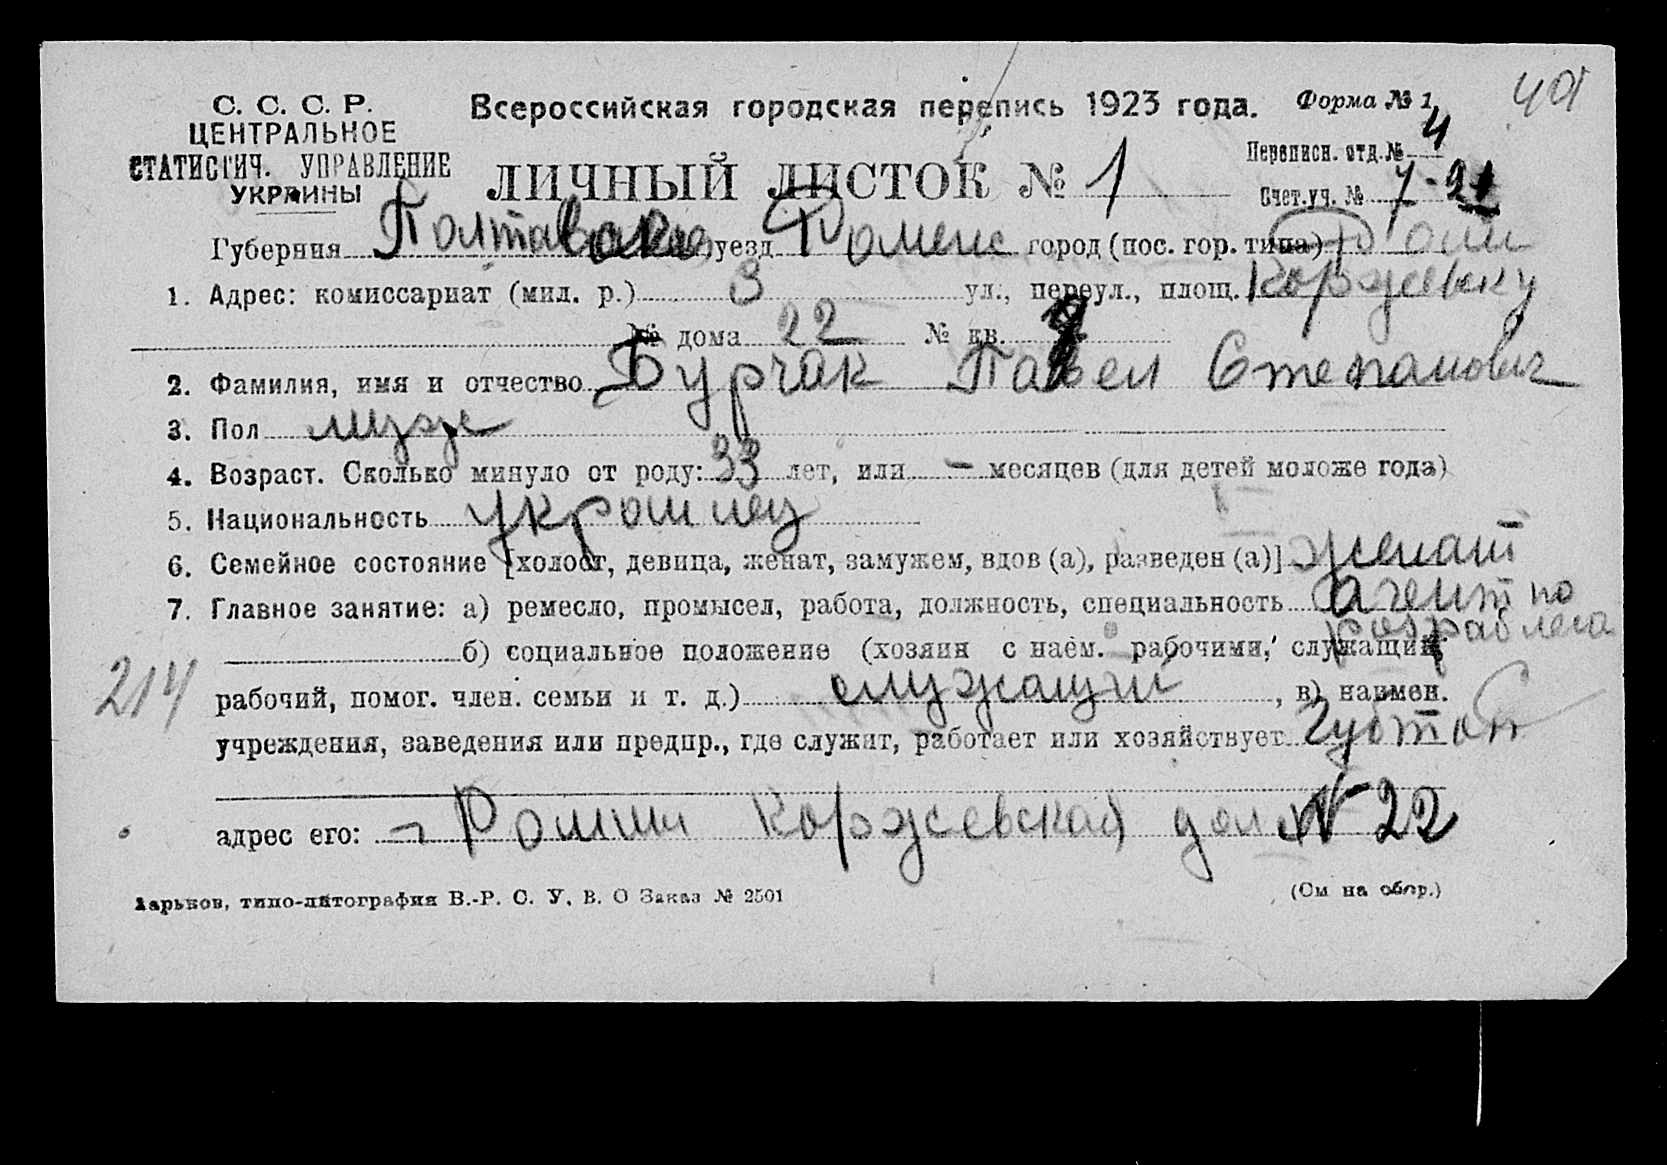 С. С. С. Р.
ЦЕНТРАЛЬНОЕ
СТАТИСТИЧ. УПРАВЛЕНИЕ
УКРАИНЫ
Всероссийская городская перепись 1923 года.
Форма № 1
ЛИЧНЫЙ ЛИСТОК № 1
Переписн. отд. № 4
Счет. уч. № 7-21
Губерния Полтавская уезд Роменс город (пос. гор. типа) Ромн
1. Адрес: комиссариат (мил. р.) 3 ул., переул., площ. Коржевку
№ дома 22 № кв.
2. Фамилия, имя и отчество Бурчак Павел Степанович
3. Пол мужс
4. Возраст. Сколько минуло от роду: 33 лет, или — месяцев (для детей моложе года)
5. Национальность украинец
6. Семейное состояние [холост, девица, женат, замужем, вдов (а), разведен (а)] женат
7. Главное занятие: а) ремесло, промысел, работа, должность, специальность агент по
разраб леса
б) социальное положение (хозяин с наём. рабочими, служащий
214
рабочий, помог. член. семьи и т. д.) служащий, в) наимен.
учреждения, заведения или предпр., где служит, работает или хозяйствует Губтоп
адрес его: г Ромни Коржевская дом № 22
Харьков, типо-литография В.-Р. С. У. В. О Заказ № 2501
(См на обор.)